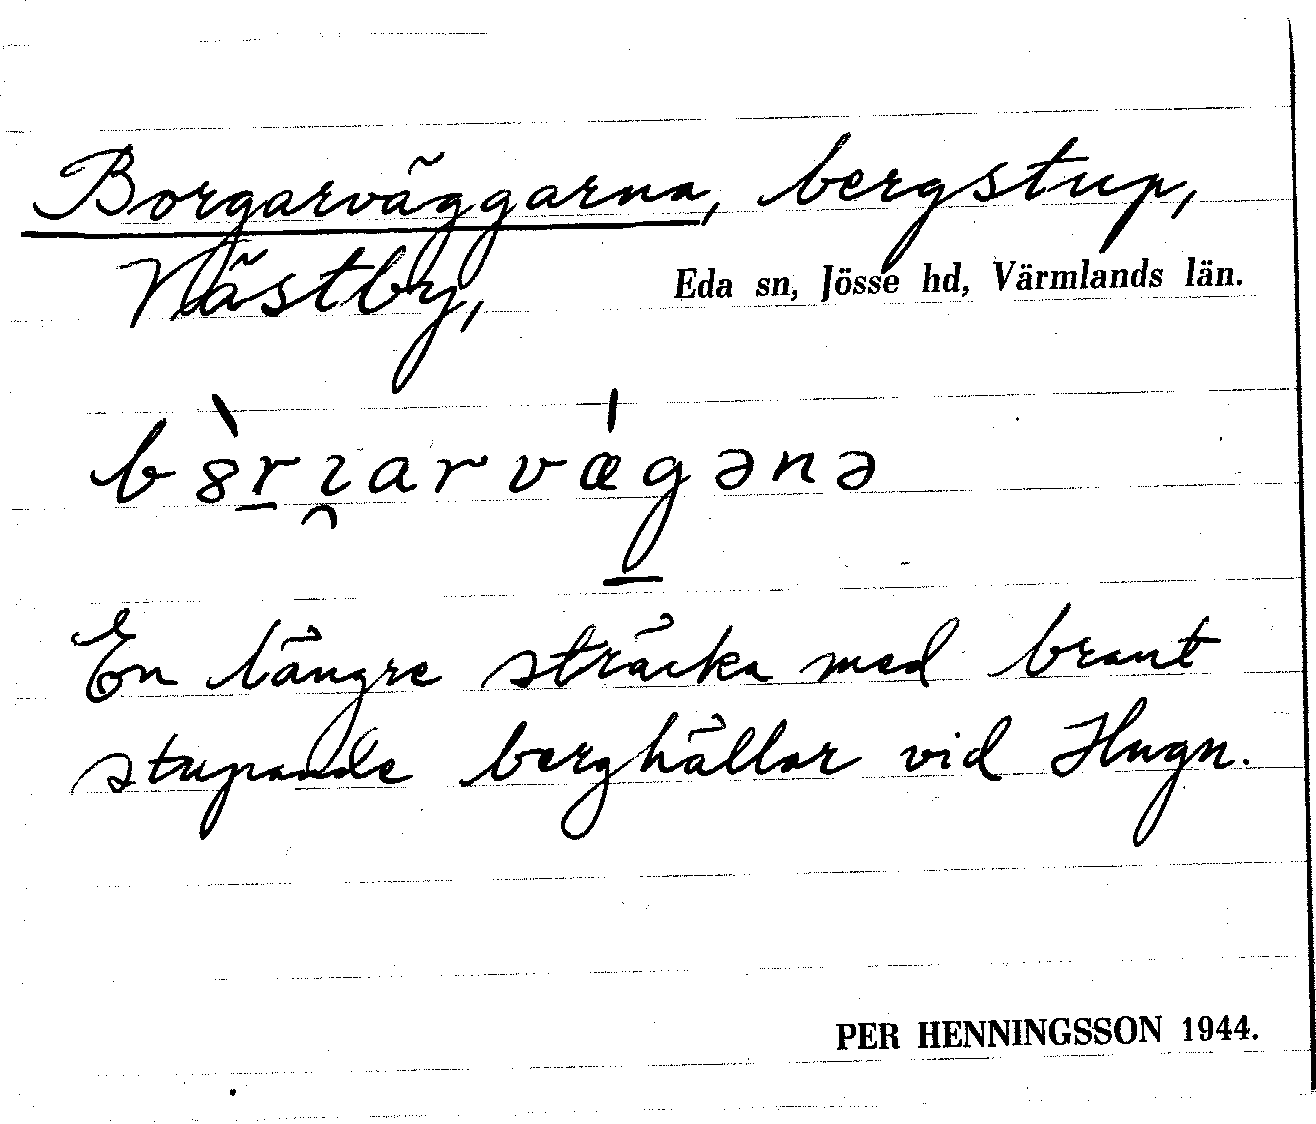 Borgarväggarna, bergstup,
Nästby, Eda sn, Jösse hd, Värmlands län.
b8̀r̲ı̯arvǽg̲ənə
En längre sträcka med brant
stupande berghällar vid Hugn.
PER HENNINGSSON 1944.